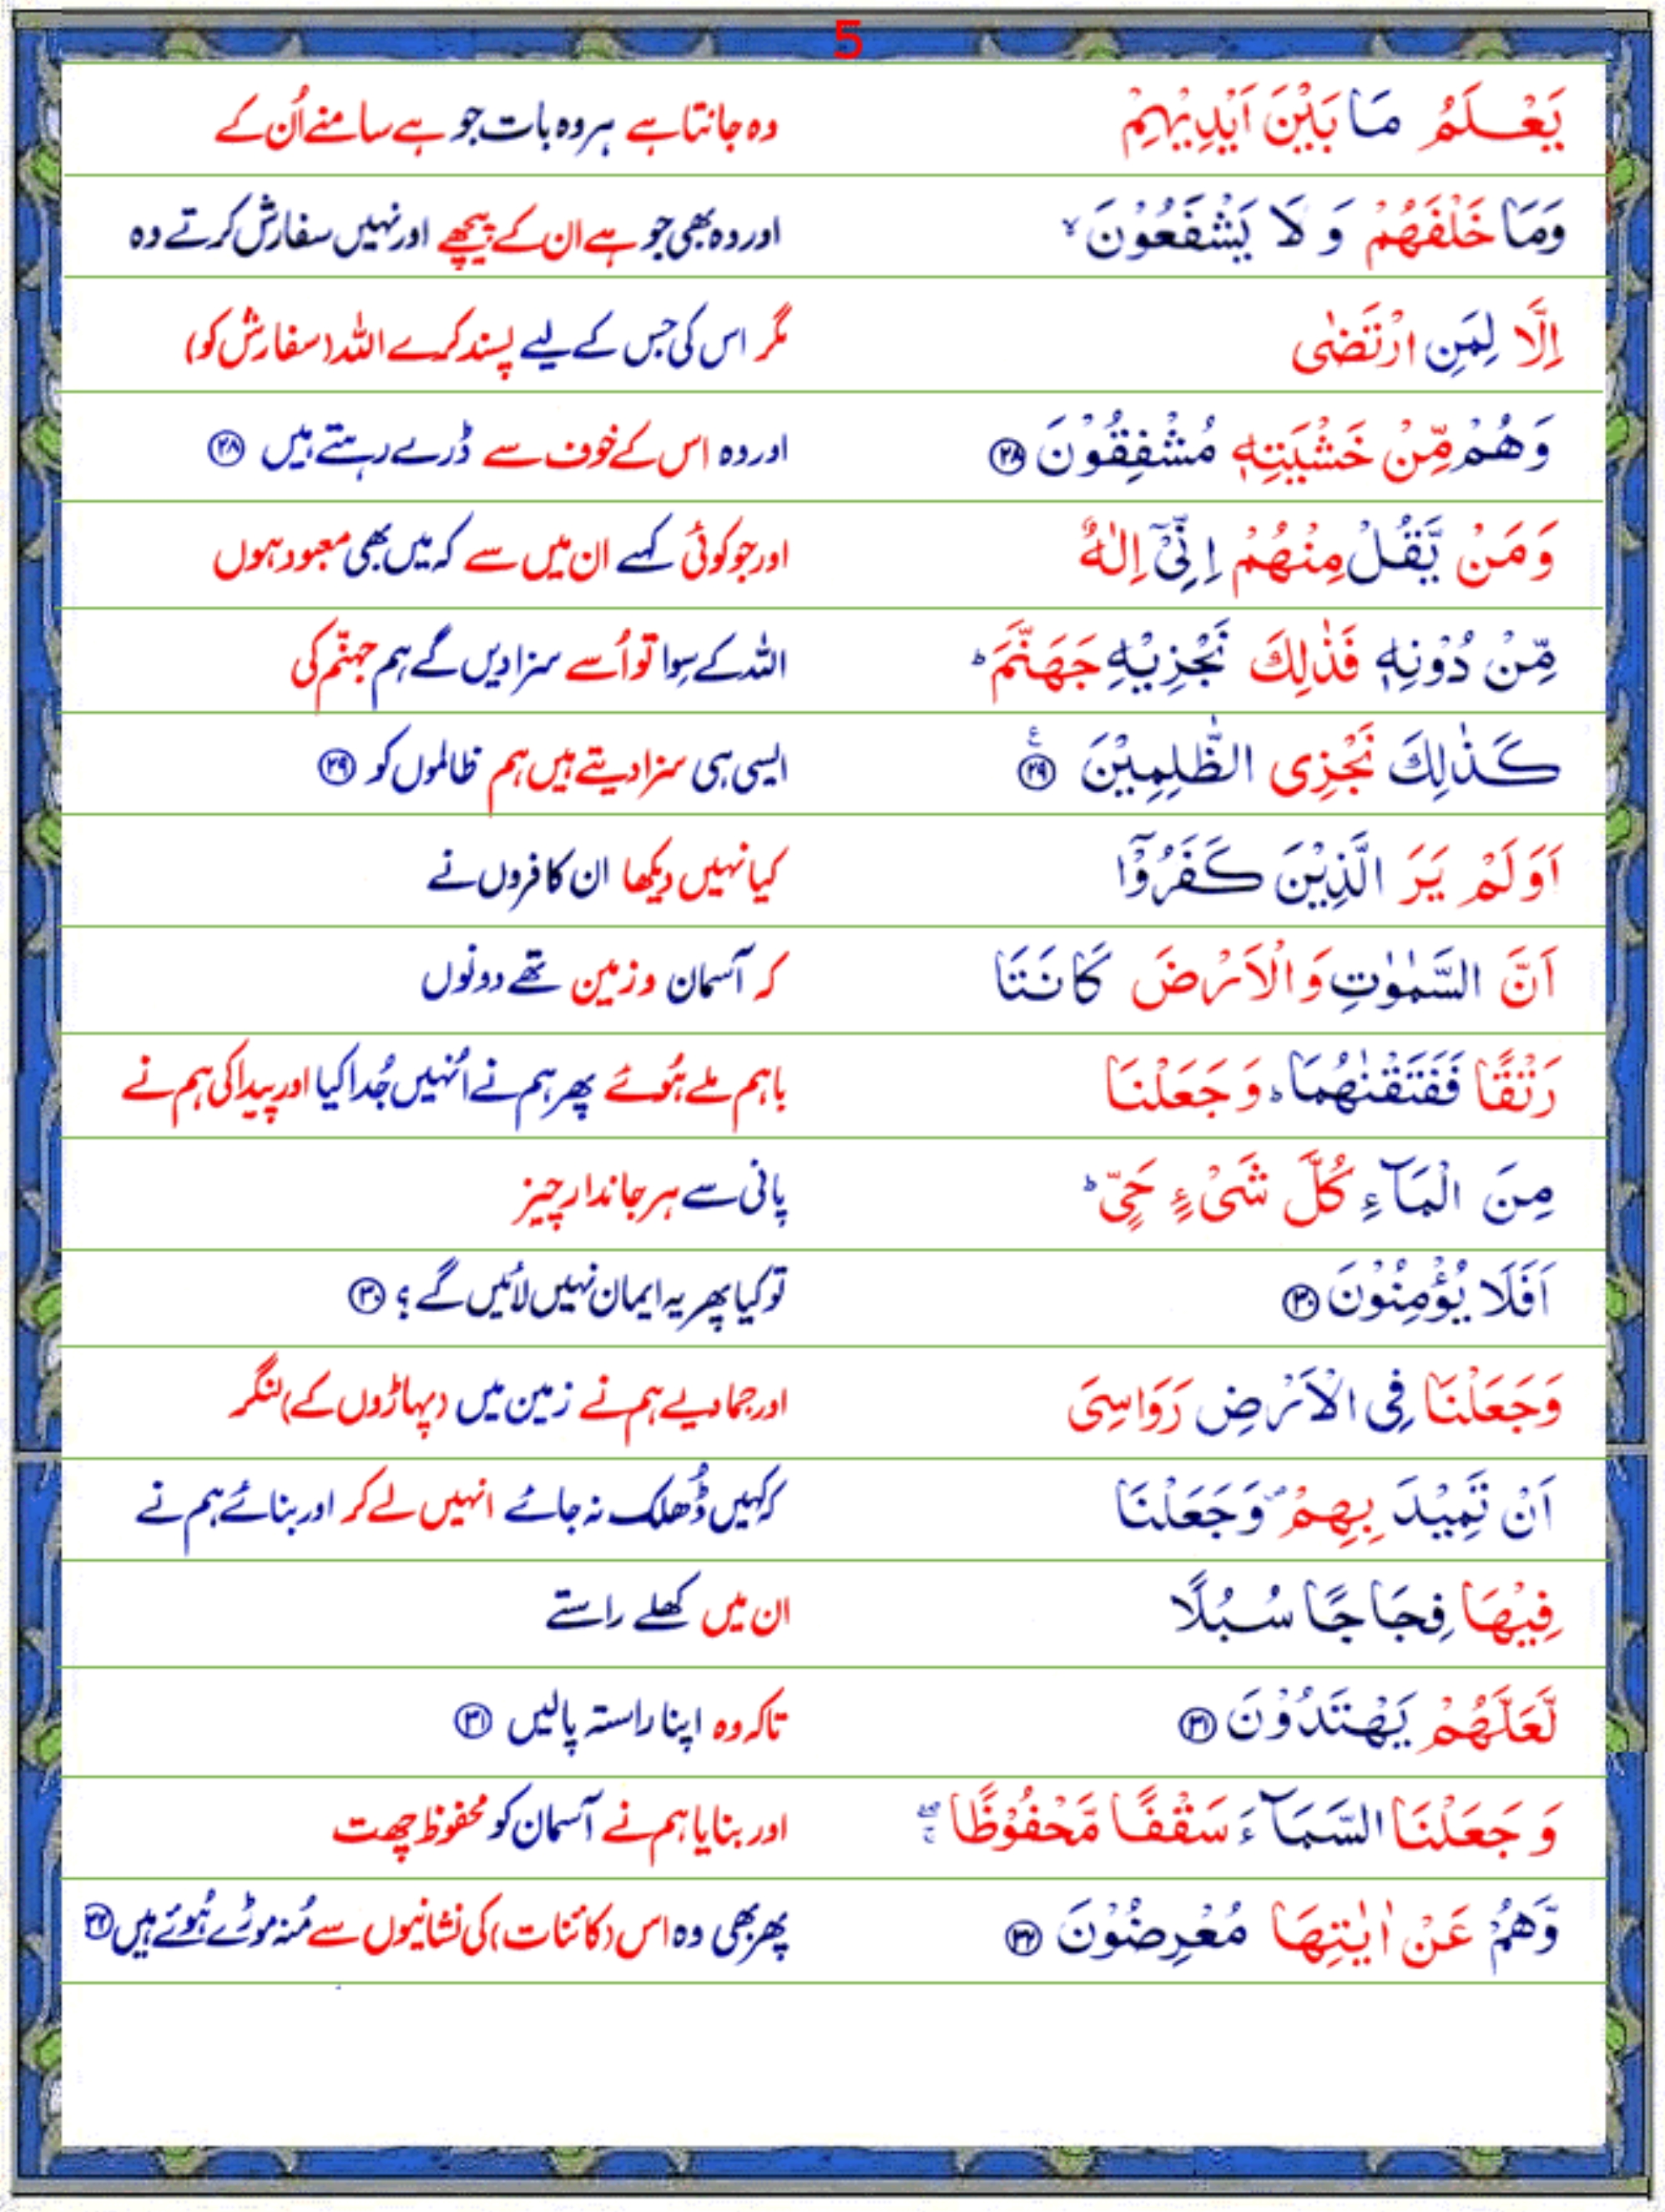 5
يَعْلَمُ مَا بَيْنَ اَيْدِيْهِمْ وہ جانتا ہے ہر وہ بات جو ہے سامنے اُن کے
وَمَا خَلْفَهُمْ وَ لَا يَشْفَعُوْنَ ۙ اور وہ بھی جو ہے ان کے پیچھے اور نہیں سفارش کرتے وہ
اِلَّا لِمَنِ ارْتَضٰى مگر اس کی جس کے لیے پسند کرے اللہ (سفارش کو)
وَهُمْ مِّنْ خَشْيَتِهٖ مُشْفِقُوْنَ ۲۸ اور وہ اس کے خوف سے ڈرے رہتے ہیں ۲۸
وَمَنْ يَّقُلْ مِنْهُمْ اِنِّىْۤ اِلٰهٌ اور جو کوئی کہے ان میں سے کہ میں بھی معبود ہوں
مِّنْ دُوْنِهٖ فَذٰلِكَ نَجْزِيْهِ جَهَنَّمَ ؕ اللہ کے سِوا تو اُسے سزا دیں گے ہم جہنّم کی
كَذٰلِكَ نَجْزِى الظّٰلِمِيْنَ ۲۹ ع ایسی ہی سزا دیتے ہیں ہم ظالموں کو ۲۹
اَوَلَمْ يَرَ الَّذِيْنَ كَفَرُوْۤا کیا نہیں دیکھا ان کافروں نے
اَنَّ السَّمٰوٰتِ وَالْاَرْضَ كَانَتَا کہ آسمان و زمین تھے دونوں
رَتْقًا فَفَتَقْنٰهُمَا ؕ وَجَعَلْنَا باہم ملے ہُوئے پھر ہم نے اُنہیں جُدا کیا اور پیدا کی ہم نے
مِنَ الْمَآءِ كُلَّ شَىْءٍ حَىٍّ ؕ پانی سے ہر جاندار چیز
اَفَلَا يُؤْمِنُوْنَ ۳۰ تو کیا پھر یہ ایمان نہیں لائیں گے ؟ ۳۰
وَجَعَلْنَا فِى الْاَرْضِ رَوَاسِىَ اور جما دیے ہم نے زمین میں (پہاڑوں کے) لنگر
اَنْ تَمِيْدَ بِهِمْ ۪ وَجَعَلْنَا کہ کہیں ڈُھلک نہ جائے انہیں لے کر اور بنائے ہم نے
فِيْهَا فِجَاجًا سُبُلًا ان میں کھلے راستے
لَّعَلَّهُمْ يَهْتَدُوْنَ ۳۱ تاکہ وہ اپنا راستہ پالیں ۳۱
وَ جَعَلْنَا السَّمَآءَ سَقْفًا مَّحْفُوْظًا ۖۚ اور بنایا ہم نے آسمان کو محفوظ چھت
وَّهُمْ عَنْ اٰيٰتِهَا مُعْرِضُوْنَ ۳۲ پھر بھی وہ اس (کائنات) کی نشانیوں سے مُنہ موڑے ہُوئے ہیں ۳۲